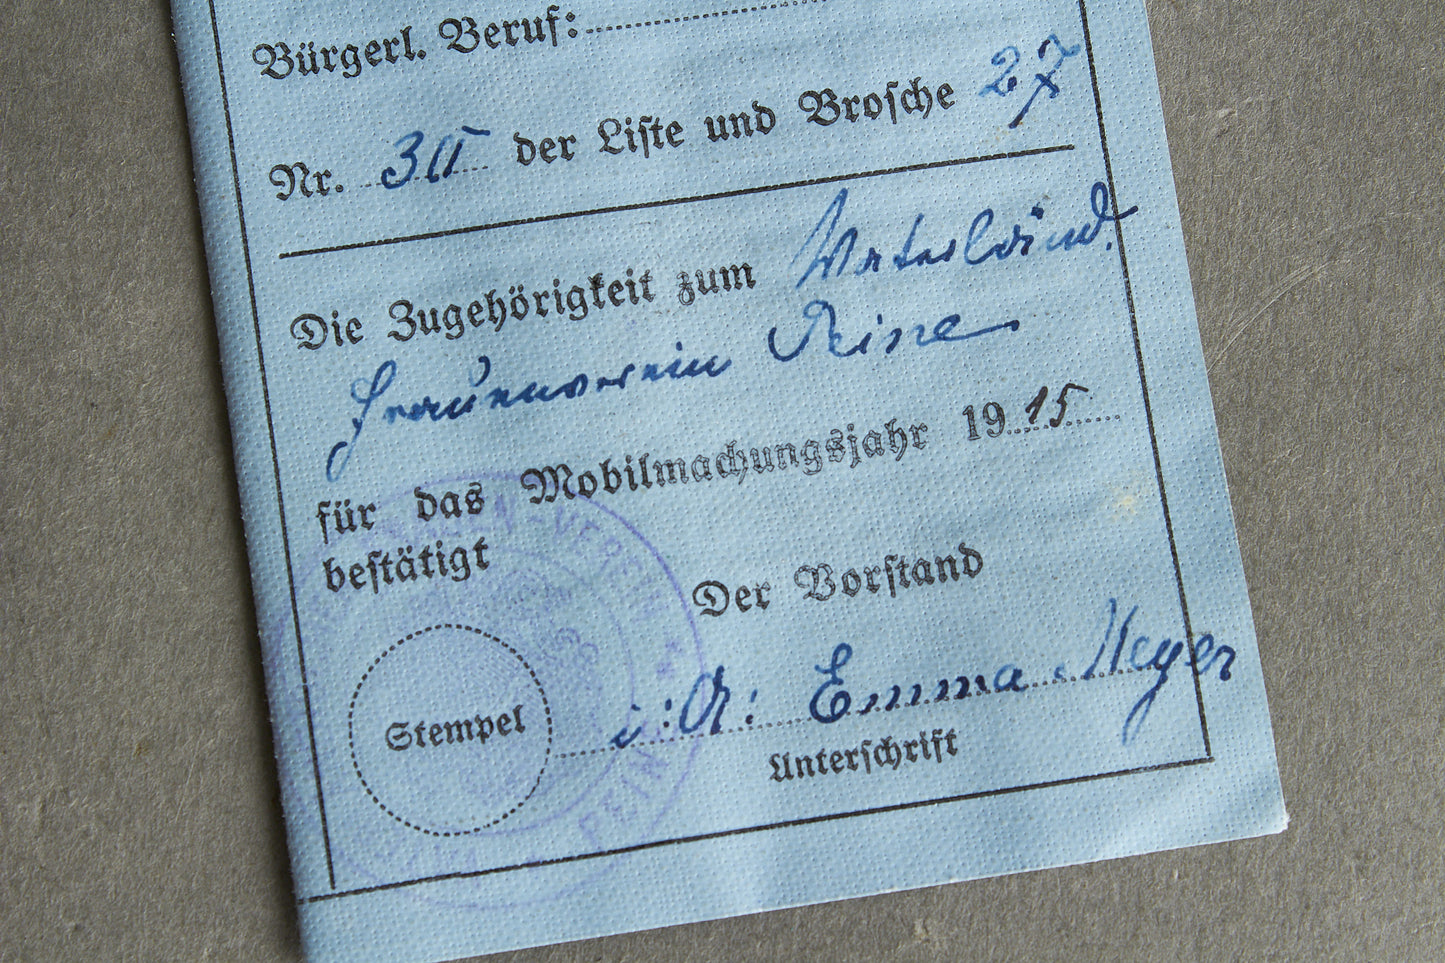 Bürgerl. Beruf:
Nr. 3a der Liste und Brosche 27
Die Zugehörigkeit zum Vaterländ.
Frauenverein Peine
für das Mobilmachungsjahr 1915
bestätigt
Der Vorstand
Stempel
i. A: Emma Meyer
Unterschrift
FRAUEN-VEREIN
PEINE